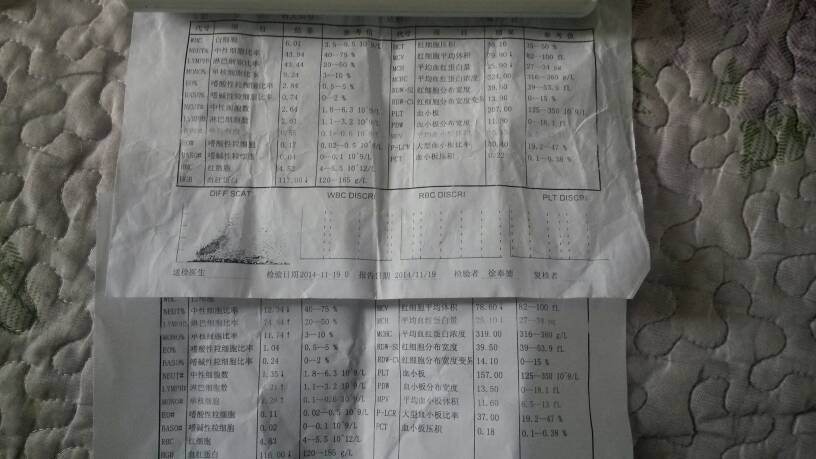 代号 项 目 结 果 参 考 值 代号 项 目 结 果 参 考 值
WBC 白细胞 6.04 3.5--9.5 10^9/L HCT 红细胞压积 35--50 %
NEUT% 中性细胞比率 43.94 40--75 % MCV 红细胞平均体积 82--100 fL
LYMPH% 淋巴细胞比率 43.44 20--50 % MCH 平均血红蛋白量 27--34 pg
MONO% 单核细胞比率 9.24 3--10 % MCHC 平均血红蛋白浓度 324.00 316--360 g/L
EO% 嗜酸性粒细胞比率 2.84 0.5--5 % RDW-SD 红细胞分布宽度 39.50 39--53.9 fL
BASO% 嗜碱性粒细胞比率 0.74 0--2 % RDW-CV 红细胞分布宽度变异 13.90 0--15 %
NEUT# 中性细胞数 2.64 1.8--6.3 10^9/L PLT 血小板 125--350 10^9/L
LYMPH# 淋巴细胞数 1.1--3.2 10^9/L PDW 血小板分布宽度 11.90 0--18.1 fL
0.55 0.1--0.6 10^9/L
EO# 嗜酸性粒细胞 0.17 0.02--0.5 10^9/L P-LCR 大型血小板比率 19.2--47 %
BASO# 嗜碱性粒细胞 0.04 0--0.1 10^9/L PCT 血小板压积 0.22 0.1--0.38 %
RBC 红细胞 4.52 4--5.5 10^12/L
HGB 血红蛋白 117.00↓ 120--165 g/L
DIFF SCAT WBC DISCRI RBC DISCRI PLT DISCRI
送检医生 检验日期 2014-11-19 0 报告日期 2014/11/19 检验者 徐奉德 复检者
NEUT% 中性细胞比率 40--75 % MCV 红细胞平均体积 78.60↓ 82--100 fL
LYMPH% 淋巴细胞比率 20--50 % MCH 平均血红蛋白量 25.10↓ 27--34 pg
MONO% 单核细胞比率 3--10 % MCHC 平均血红蛋白浓度 319.00 316--360 g/L
EO% 嗜酸性粒细胞比率 1.04 0.5--5 % RDW-SD 红细胞分布宽度 39.50 39--53.9 fL
BASO% 嗜碱性粒细胞比率 0.24 0--2 % RDW-CV 红细胞分布宽度变异 14.10 0--15 %
NEUT# 中性细胞数 1.35↓ 1.8--6.3 10^9/L PLT 血小板 157.00 125--350 10^9/L
LYMPH# 淋巴细胞数 1.1--3.2 10^9/L PDW 血小板分布宽度 13.50 0--18.1 fL
MONO# 单核细胞 0.1--0.6 10^9/L MPV 平均血小板体积 11.60 6.5--13 fL
EO# 嗜酸性粒细胞 0.11 0.02--0.5 10^9/L P-LCR 大型血小板比率 37.00 19.2--47 %
BASO# 嗜碱性粒细胞 0.02 0--0.1 10^9/L PCT 血小板压积 0.18 0.1--0.38 %
RBC 红细胞 4.63 4--5.5 10^12/L
HGB 血红蛋白 116.00↓ 120--165 g/L